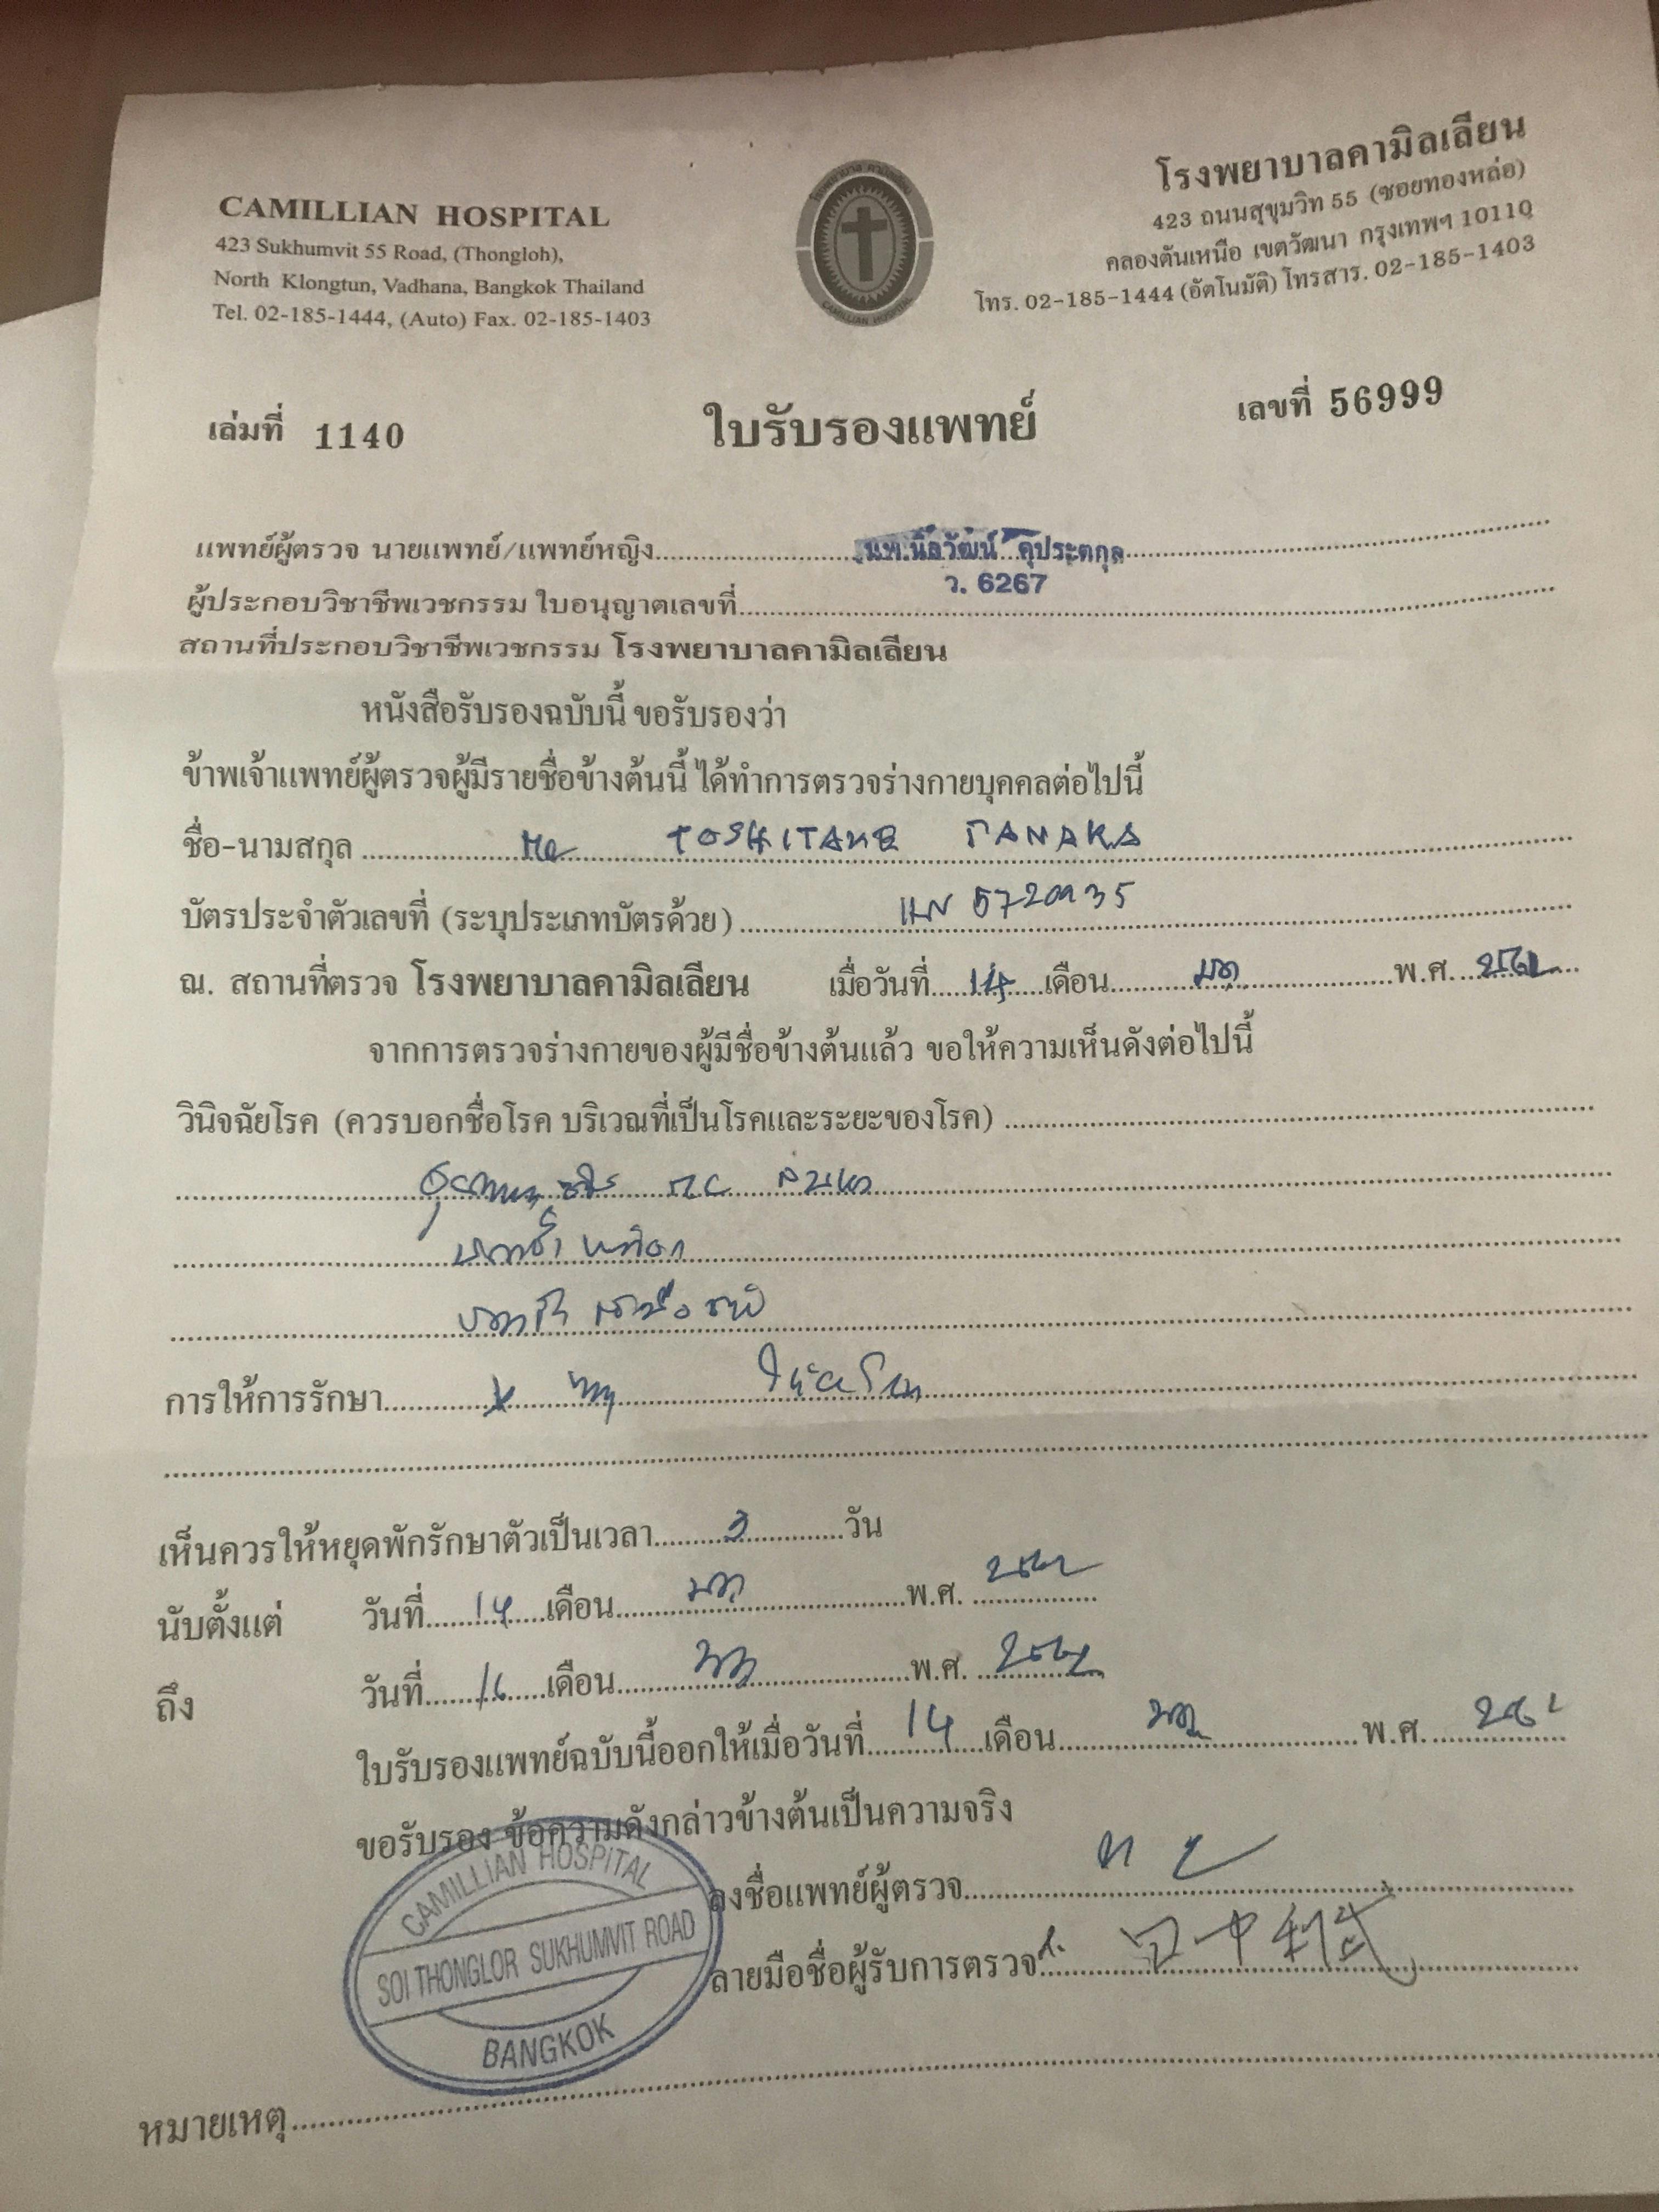 CAMILLIAN HOSPITAL
423 Sukhumvit 55 Road, (Thongloh),
North Klongtun, Vadhana, Bangkok Thailand
Tel. 02-185-1444, (Auto) Fax. 02-185-1403
โรงพยาบาล คามิลเลียน
CAMILLIAN HOSPITAL
โรงพยาบาลคามิลเลียน
423 ถนนสุขุมวิท 55 (ซอยทองหล่อ)
คลองตันเหนือ เขตวัฒนา กรุงเทพฯ 10110
โทร. 02-185-1444 (อัตโนมัติ) โทรสาร. 02-185-1403
เล่มที่ 1140
ใบรับรองแพทย์
เลขที่ 56999
แพทย์ผู้ตรวจ นายแพทย์/แพทย์หญิง นพ.นิลวัฒน์ คุประตกุล
ว. 6267
ผู้ประกอบวิชาชีพเวชกรรม ใบอนุญาตเลขที่
สถานที่ประกอบวิชาชีพเวชกรรม โรงพยาบาลคามิลเลียน
หนังสือรับรองฉบับนี้ ขอรับรองว่า
ข้าพเจ้าแพทย์ผู้ตรวจผู้มีรายชื่อข้างต้นนี้ ได้ทำการตรวจร่างกายบุคคลต่อไปนี้
ชื่อ-นามสกุล Mr TOSHITAKE TANAKA
บัตรประจำตัวเลขที่ (ระบุประเภทบัตรด้วย)
ณ. สถานที่ตรวจ โรงพยาบาลคามิลเลียน เมื่อวันที่ 14 เดือน พ.ศ.
จากการตรวจร่างกายของผู้มีชื่อข้างต้นแล้ว ขอให้ความเห็นดังต่อไปนี้
วินิจฉัยโรค (ควรบอกชื่อโรค บริเวณที่เป็นโรคและระยะของโรค)
การให้การรักษา
เห็นควรให้หยุดพักรักษาตัวเป็นเวลา 3 วัน
นับตั้งแต่ วันที่ 14 เดือน พ.ศ.
ถึง วันที่ 16 เดือน พ.ศ.
ใบรับรองแพทย์ฉบับนี้ออกให้เมื่อวันที่ 14 เดือน พ.ศ.
ขอรับรอง ข้อความดังกล่าวข้างต้นเป็นความจริง
ลงชื่อแพทย์ผู้ตรวจ
ลายมือชื่อผู้รับการตรวจ
CAMILLIAN HOSPITAL
SOI THONGLOR SUKHUMVIT ROAD
BANGKOK
หมายเหตุ